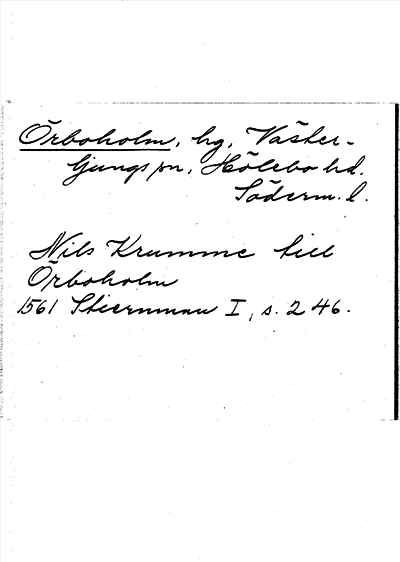 Örboholm, hg, Väster-
ljungs sn, Hölebo hd.
Söderm. l.
Nils Krumme till
Örboholm
1561 Stiernman I, s. 246.